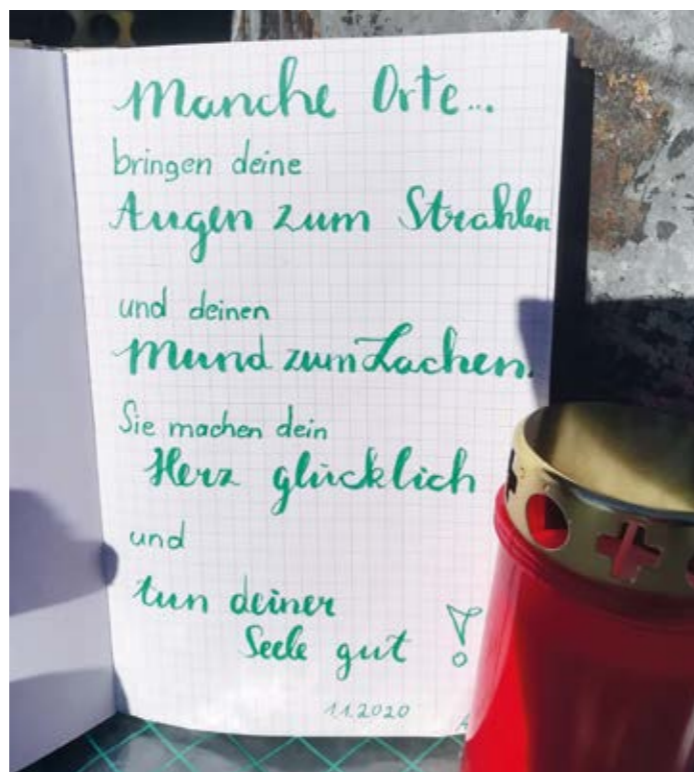 Manche Orte...
bringen deine
Augen zum Strahlen
und deinen
Mund zum Lachen.
Sie machen dein
Herz glücklich
und
tun deiner
Seele gut !
11.2020